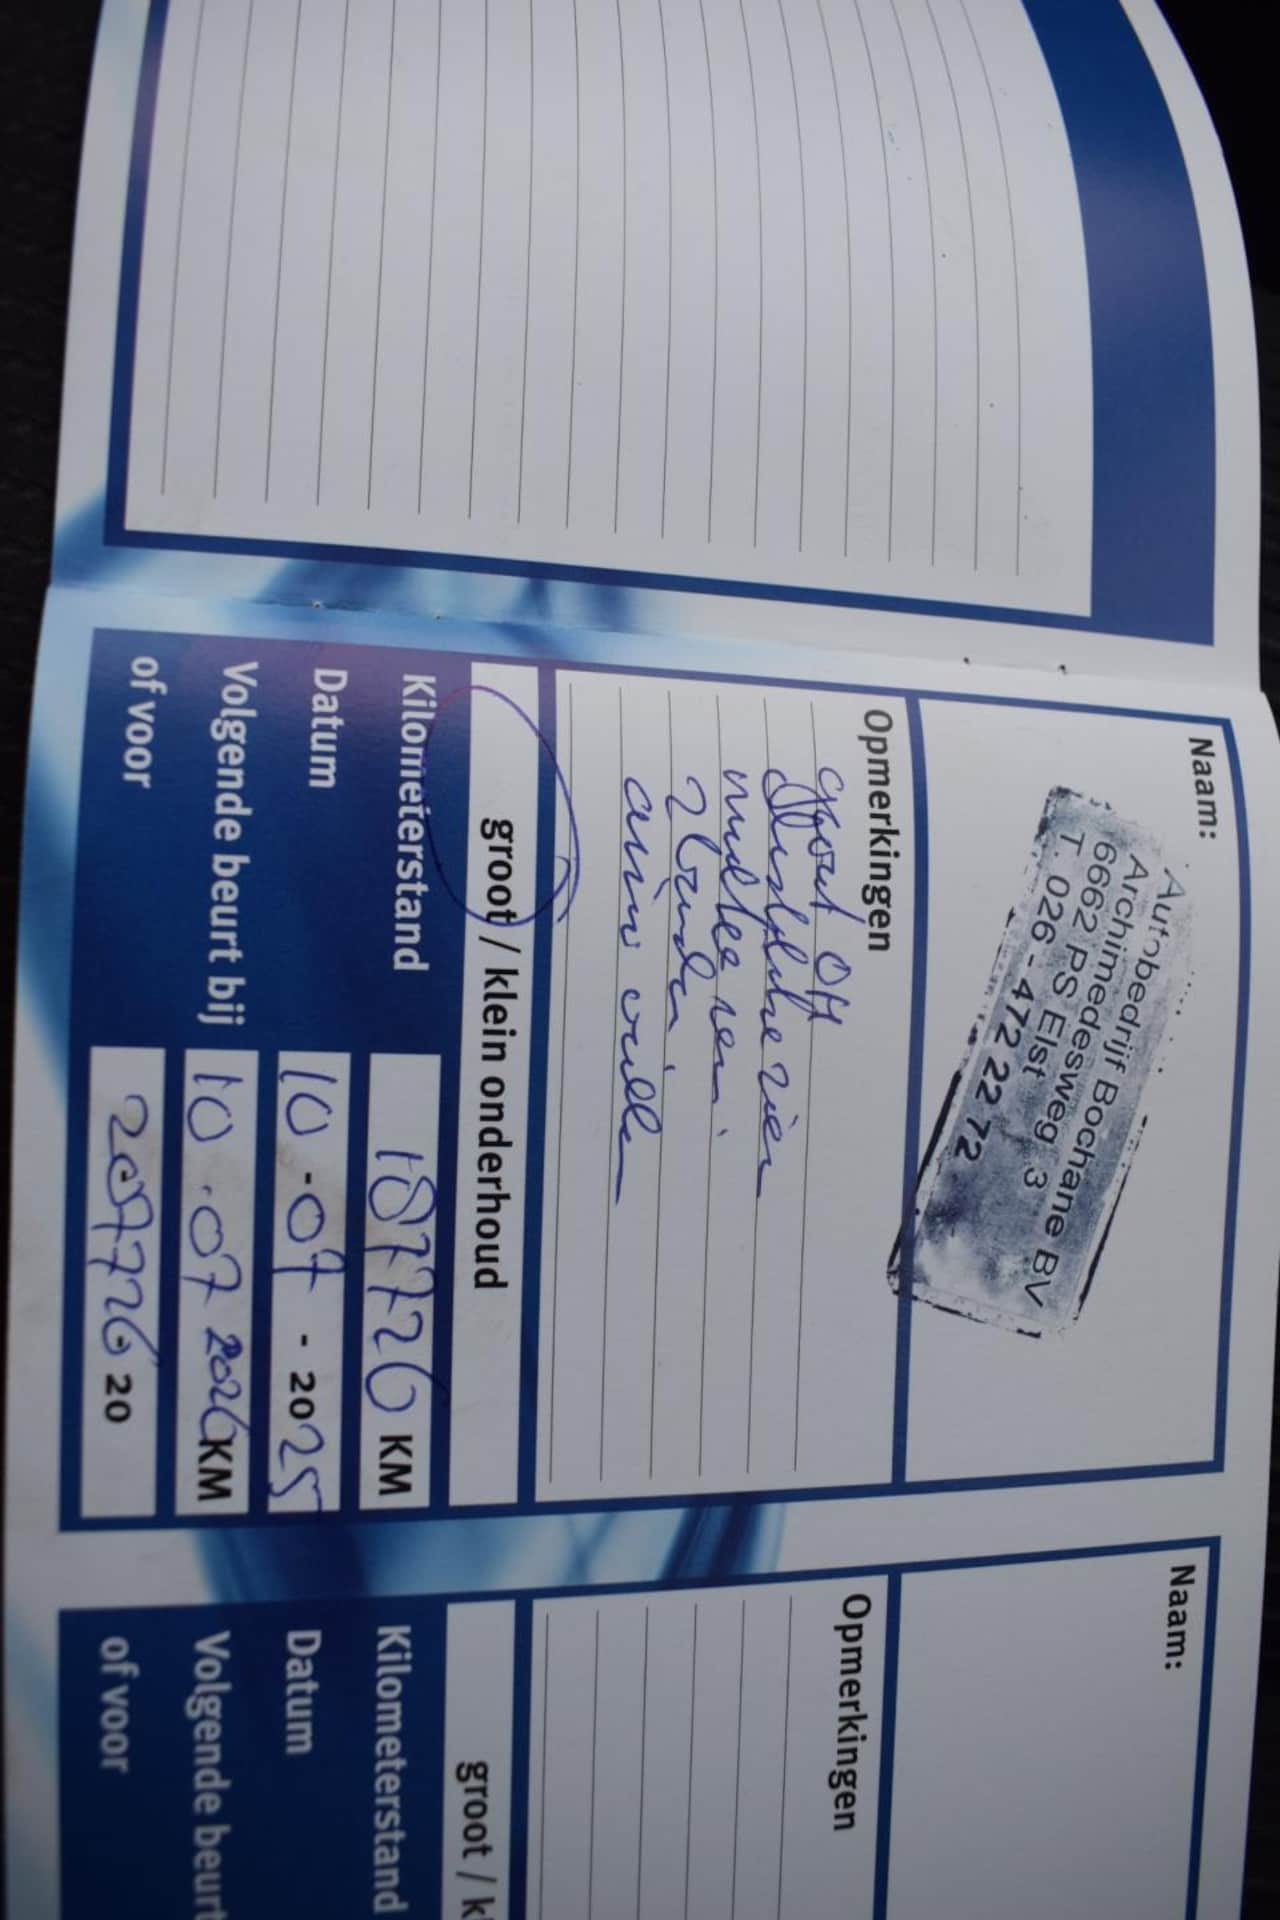 Naam:
Autobedrijf Bochane BV
Archimedesweg 3
6662 PS Elst
T. 026 - 472 22 72
Opmerkingen
groot OH
2 banden
airco vullen
groot / klein onderhoud
Kilometerstand 187726 KM
Datum 10-07-2025
Volgende beurt bij 10.07 2026 KM
of voor 207726 - 20
Naam:
Opmerkingen
groot / k
Kilometerstand
Datum
Volgende beurt
of voor